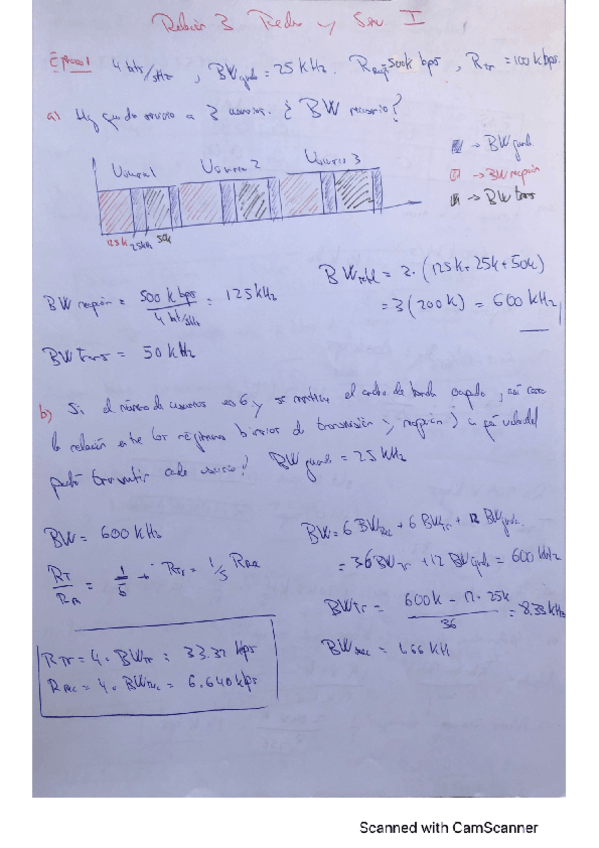 Relación 3 Redes y Serv I
4 bits/s/Hz, BW guarda = 25 KHz. 500k bps, R_TR = 100 kbps.
a) Hay que dar servicio a 3 usuarios. ¿BW necesario?
Usuario 1 Usuario 2 Usuario 3
→ BW guarda
→ BW recepción
→ BW trans
125k 25kHz 50k
BW total = 3 · (125k + 25k + 50k)
= 3 (200k) = 600 kHz
BW recepción = 500 k bps / 4 bit/s/Hz = 125 kHz
BW trans = 50 kHz
b) Si el número de usuarios es 6 y se mantiene el ancho de banda ocupado, así como
la relación entre los regímenes binarios de transmisión y recepción, ¿a qué velocidad
podrá transmitir cada usuario? BW guarda = 25 KHz
BW = 600 KHz
R_T / R_R = 1/5 → R_TR = 1/5 R_Rec
BW = 6 BW_Rec + 6 BW_Tr + 12 BW guarda
= 36 BW_Tr + 12 BW guarda = 600 kHz
BW_Tr = 600k - 12 · 25k / 36 = 8.33 kHz
BW_Rec = 1.66 KH
R_TR = 4 · BW_Tr = 33.32 kbps
R_Rec = 4 · BW_Rec = 6.640 kbps
Scanned with CamScanner